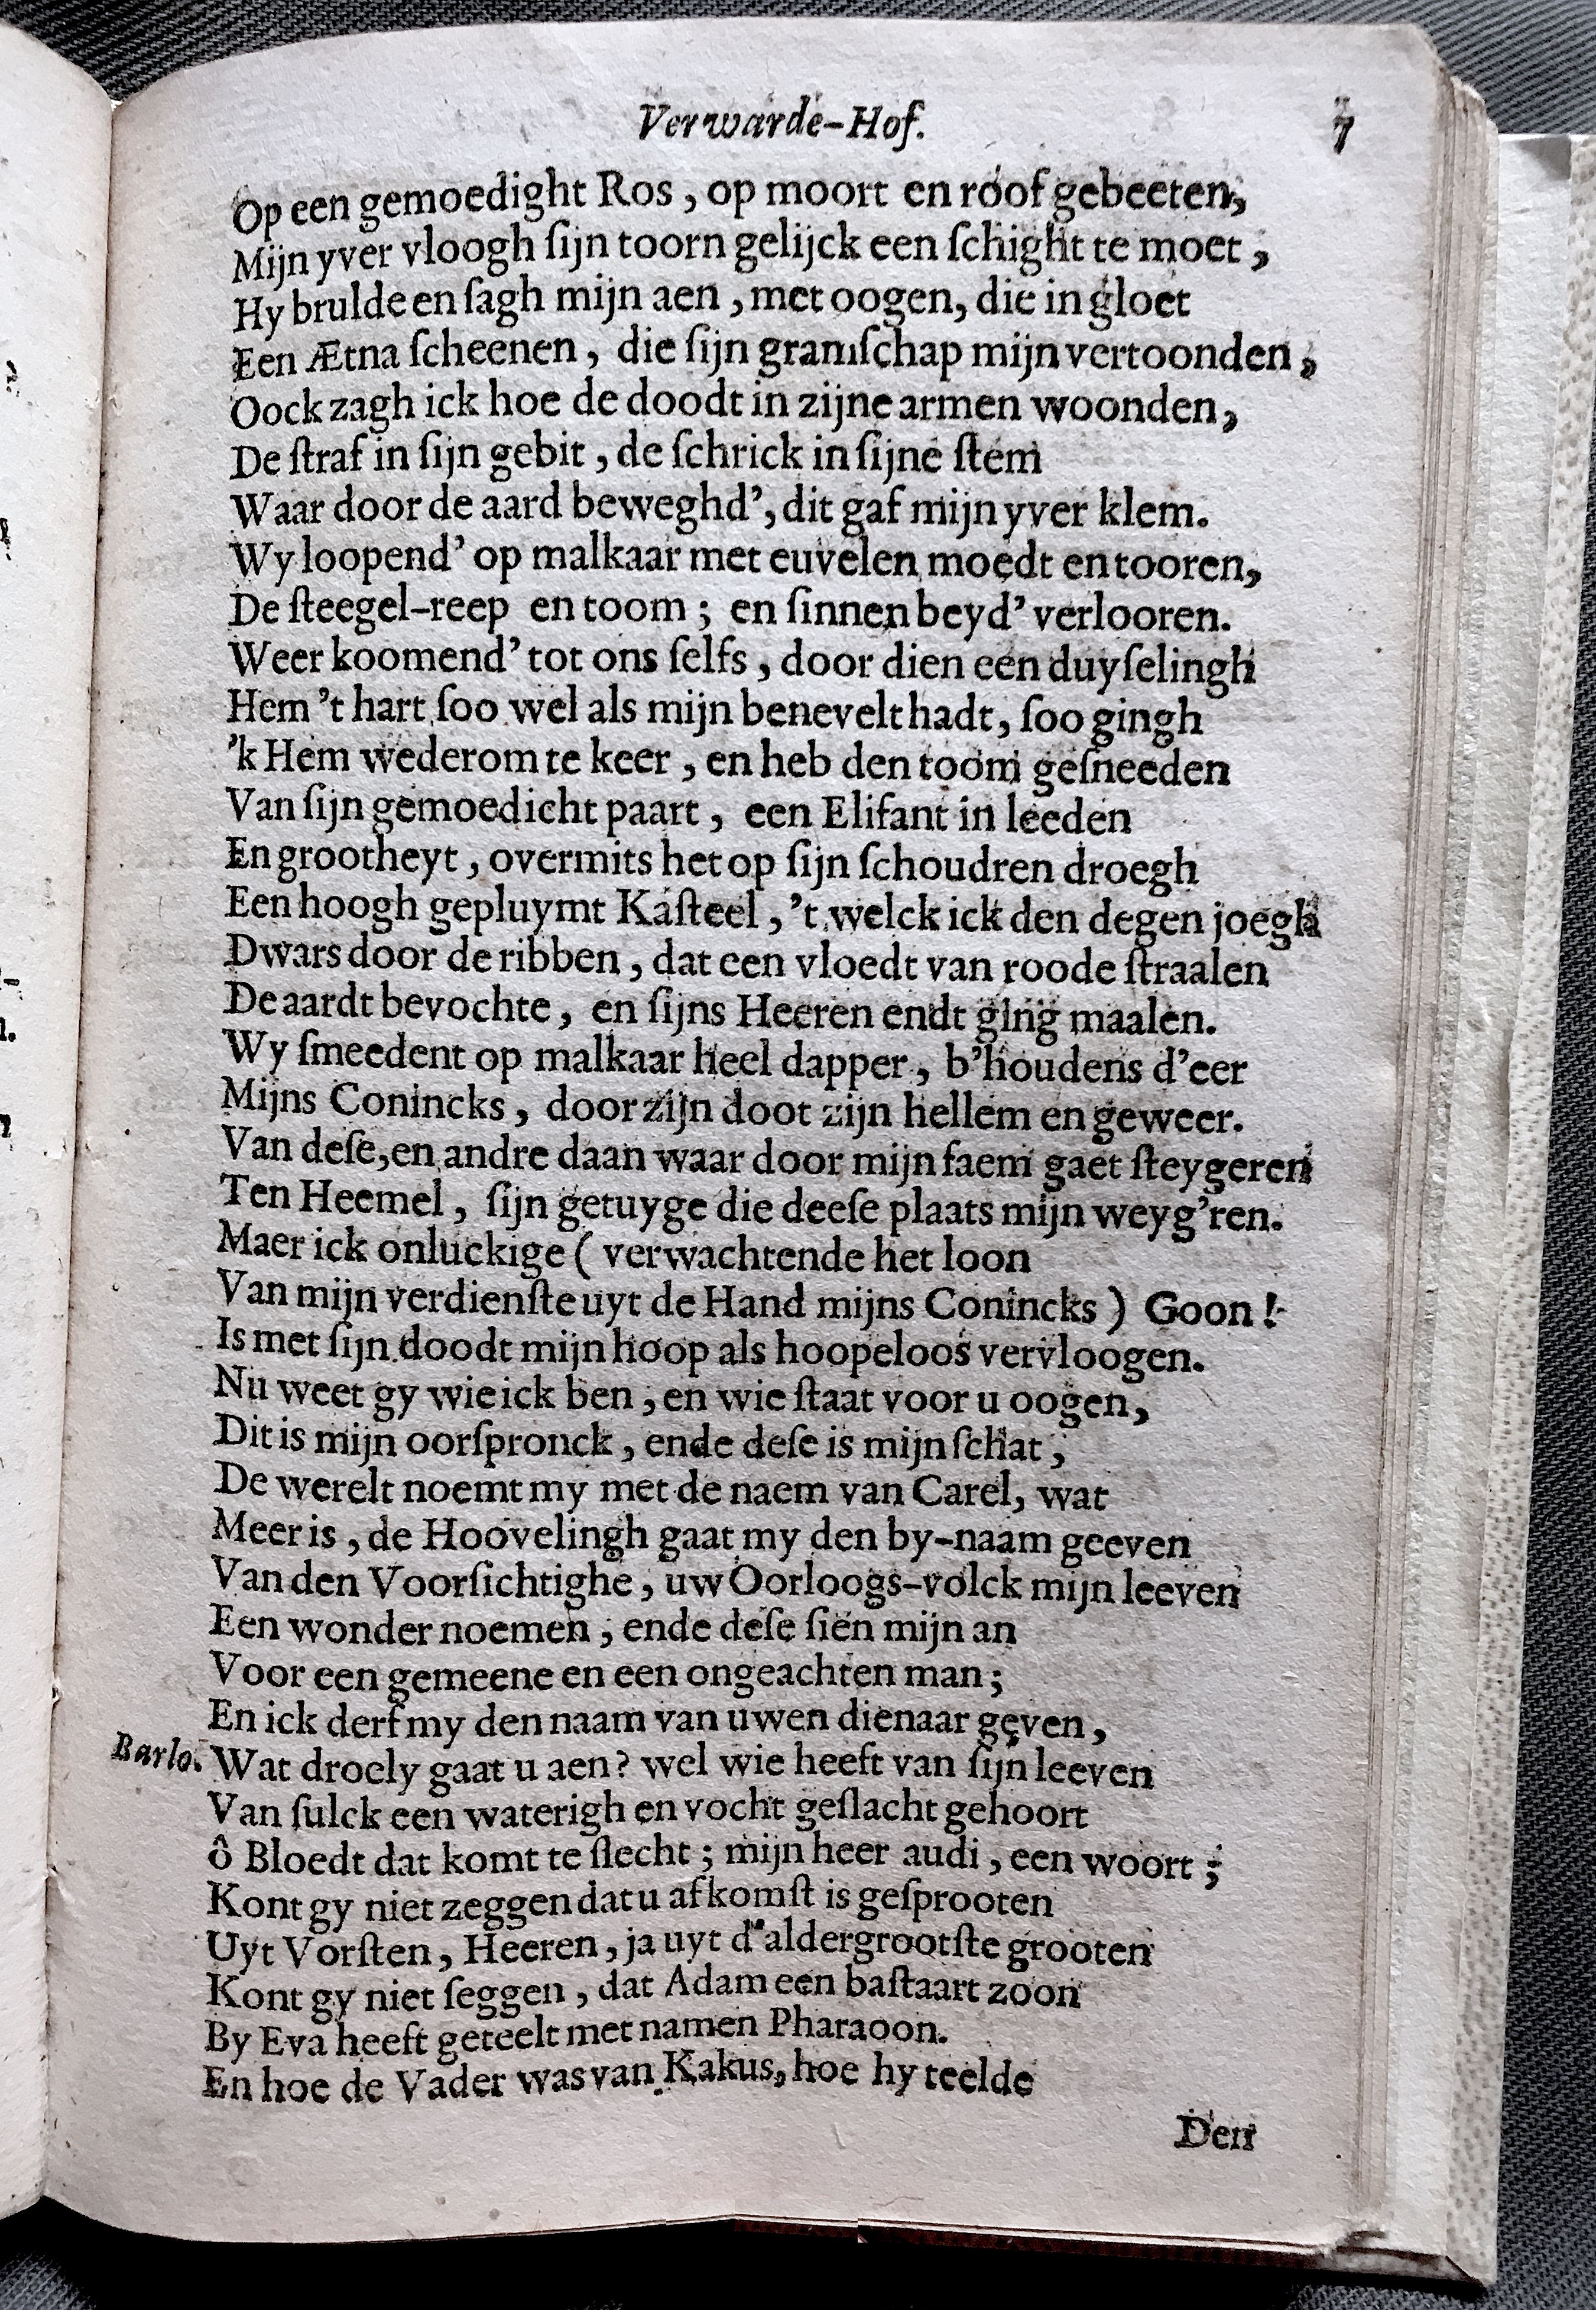 Verwarde-Hof. 7
Op een gemoedight Ros, op moort en roof gebeeten,
Mijn yver vloogh ſijn toorn gelijck een ſchight te moet,
Hy brulde en ſagh mijn aen, met oogen, die in gloet
Een Ætna ſcheenen, die ſijn gramſchap mijn vertoonden,
Oock zagh ick hoe de doodt in zijne armen woonden,
De ſtraf in ſijn gebit, de ſchrick in ſijne ſtem
Waar door de aard beweghd', dit gaf mijn yver klem.
Wy loopend' op malkaar met euvelen moedt en tooren,
De ſteegel-reep en toom; en ſinnen beyd' verlooren.
Weer koomend' tot ons ſelfs, door dien een duyſelingh
Hem 't hart ſoo wel als mijn benevelt hadt, ſoo gingh
'k Hem wederom te keer, en heb den toom geſneeden
Van ſijn gemoedicht paart, een Elifant in leeden
En grootheyt, overmits het op ſijn ſchoudren droegh
Een hoogh gepluymt Kaſteel, 't welck ick den degen joegh
Dwars door de ribben, dat een vloedt van roode ſtraalen
De aardt bevochte, en ſijns Heeren endt ging maalen.
Wy ſmeedent op malkaar heel dapper, b'houdens d'eer
Mijns Conincks, door zijn doot zijn hellem en geweer.
Van deſe, en andre daan waar door mijn faem gaet ſteygeren
Ten Heemel, ſijn getuyge die deeſe plaats mijn weyg'ren.
Maer ick onluckige ( verwachtende het loon
Van mijn verdienſte uyt de Hand mijns Conincks ) Goon!
Is met ſijn doodt mijn hoop als hoopeloos vervloogen.
Nu weet gy wie ick ben, en wie ſtaat voor u oogen,
Dit is mijn oorſpronck, ende deſe is mijn ſchat,
De werelt noemt my met de naem van Carel, wat
Meer is, de Hoovelingh gaat my den by-naam geeven
Van den Voorſichtighe, uw Oorloogs-volck mijn leeven
Een wonder noemen, ende deſe ſien mijn an
Voor een gemeene en een ongeachten man;
En ick derf my den naam van uwen dienaar geven,
Barlo. Wat droely gaat u aen? wel wie heeft van ſijn leeven
Van ſulck een waterigh en vocht geſlacht gehoort
ô Bloedt dat komt te ſlecht; mijn heer audi, een woort;
Kont gy niet zeggen dat u afkomſt is geſprooten
Uyt Vorſten, Heeren, ja uyt d'aldergrootſte grooten
Kont gy niet ſeggen, dat Adam een baſtaart zoon
By Eva heeft geteelt met namen Pharaoon.
En hoe de Vader was van Kakus, hoe hy teelde
Den